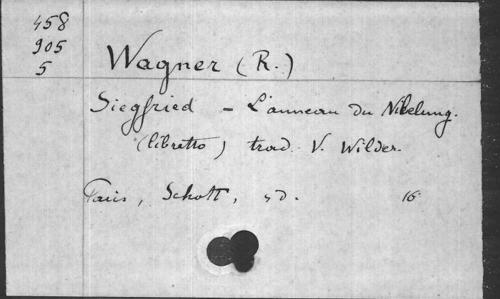 458
905
5
Wagner (R.)
Siegfried - L'anneau du Nibelung.
(libretto) trad. V. Wilder.
Paris, Schott, s d. 16